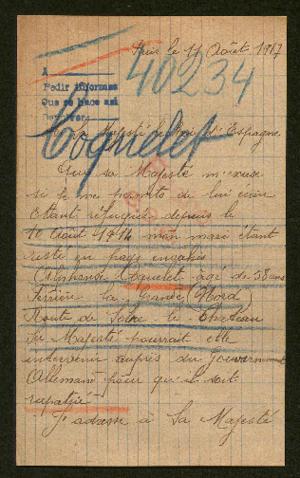 le 11 Août 1917
40234
A
Pedir informes
Que se hace asi
Coquelet
Majesté d'Espagne
Que sa Majesté m'excuse
si je me permets de lui écrire
Etant réfugiée depuis le
10 Août 1914 mon mari étant
resté en pays envahis
(Alphonse Coquelet agé de 58 ans
Ferrière la Grande (Nord)
Route de Solre le Château
Sa Majesté pourrait elle
intervenir auprès du Gouvernement
Allemand pour qu'il soit
rapatrié
J'adresse à Sa Majesté